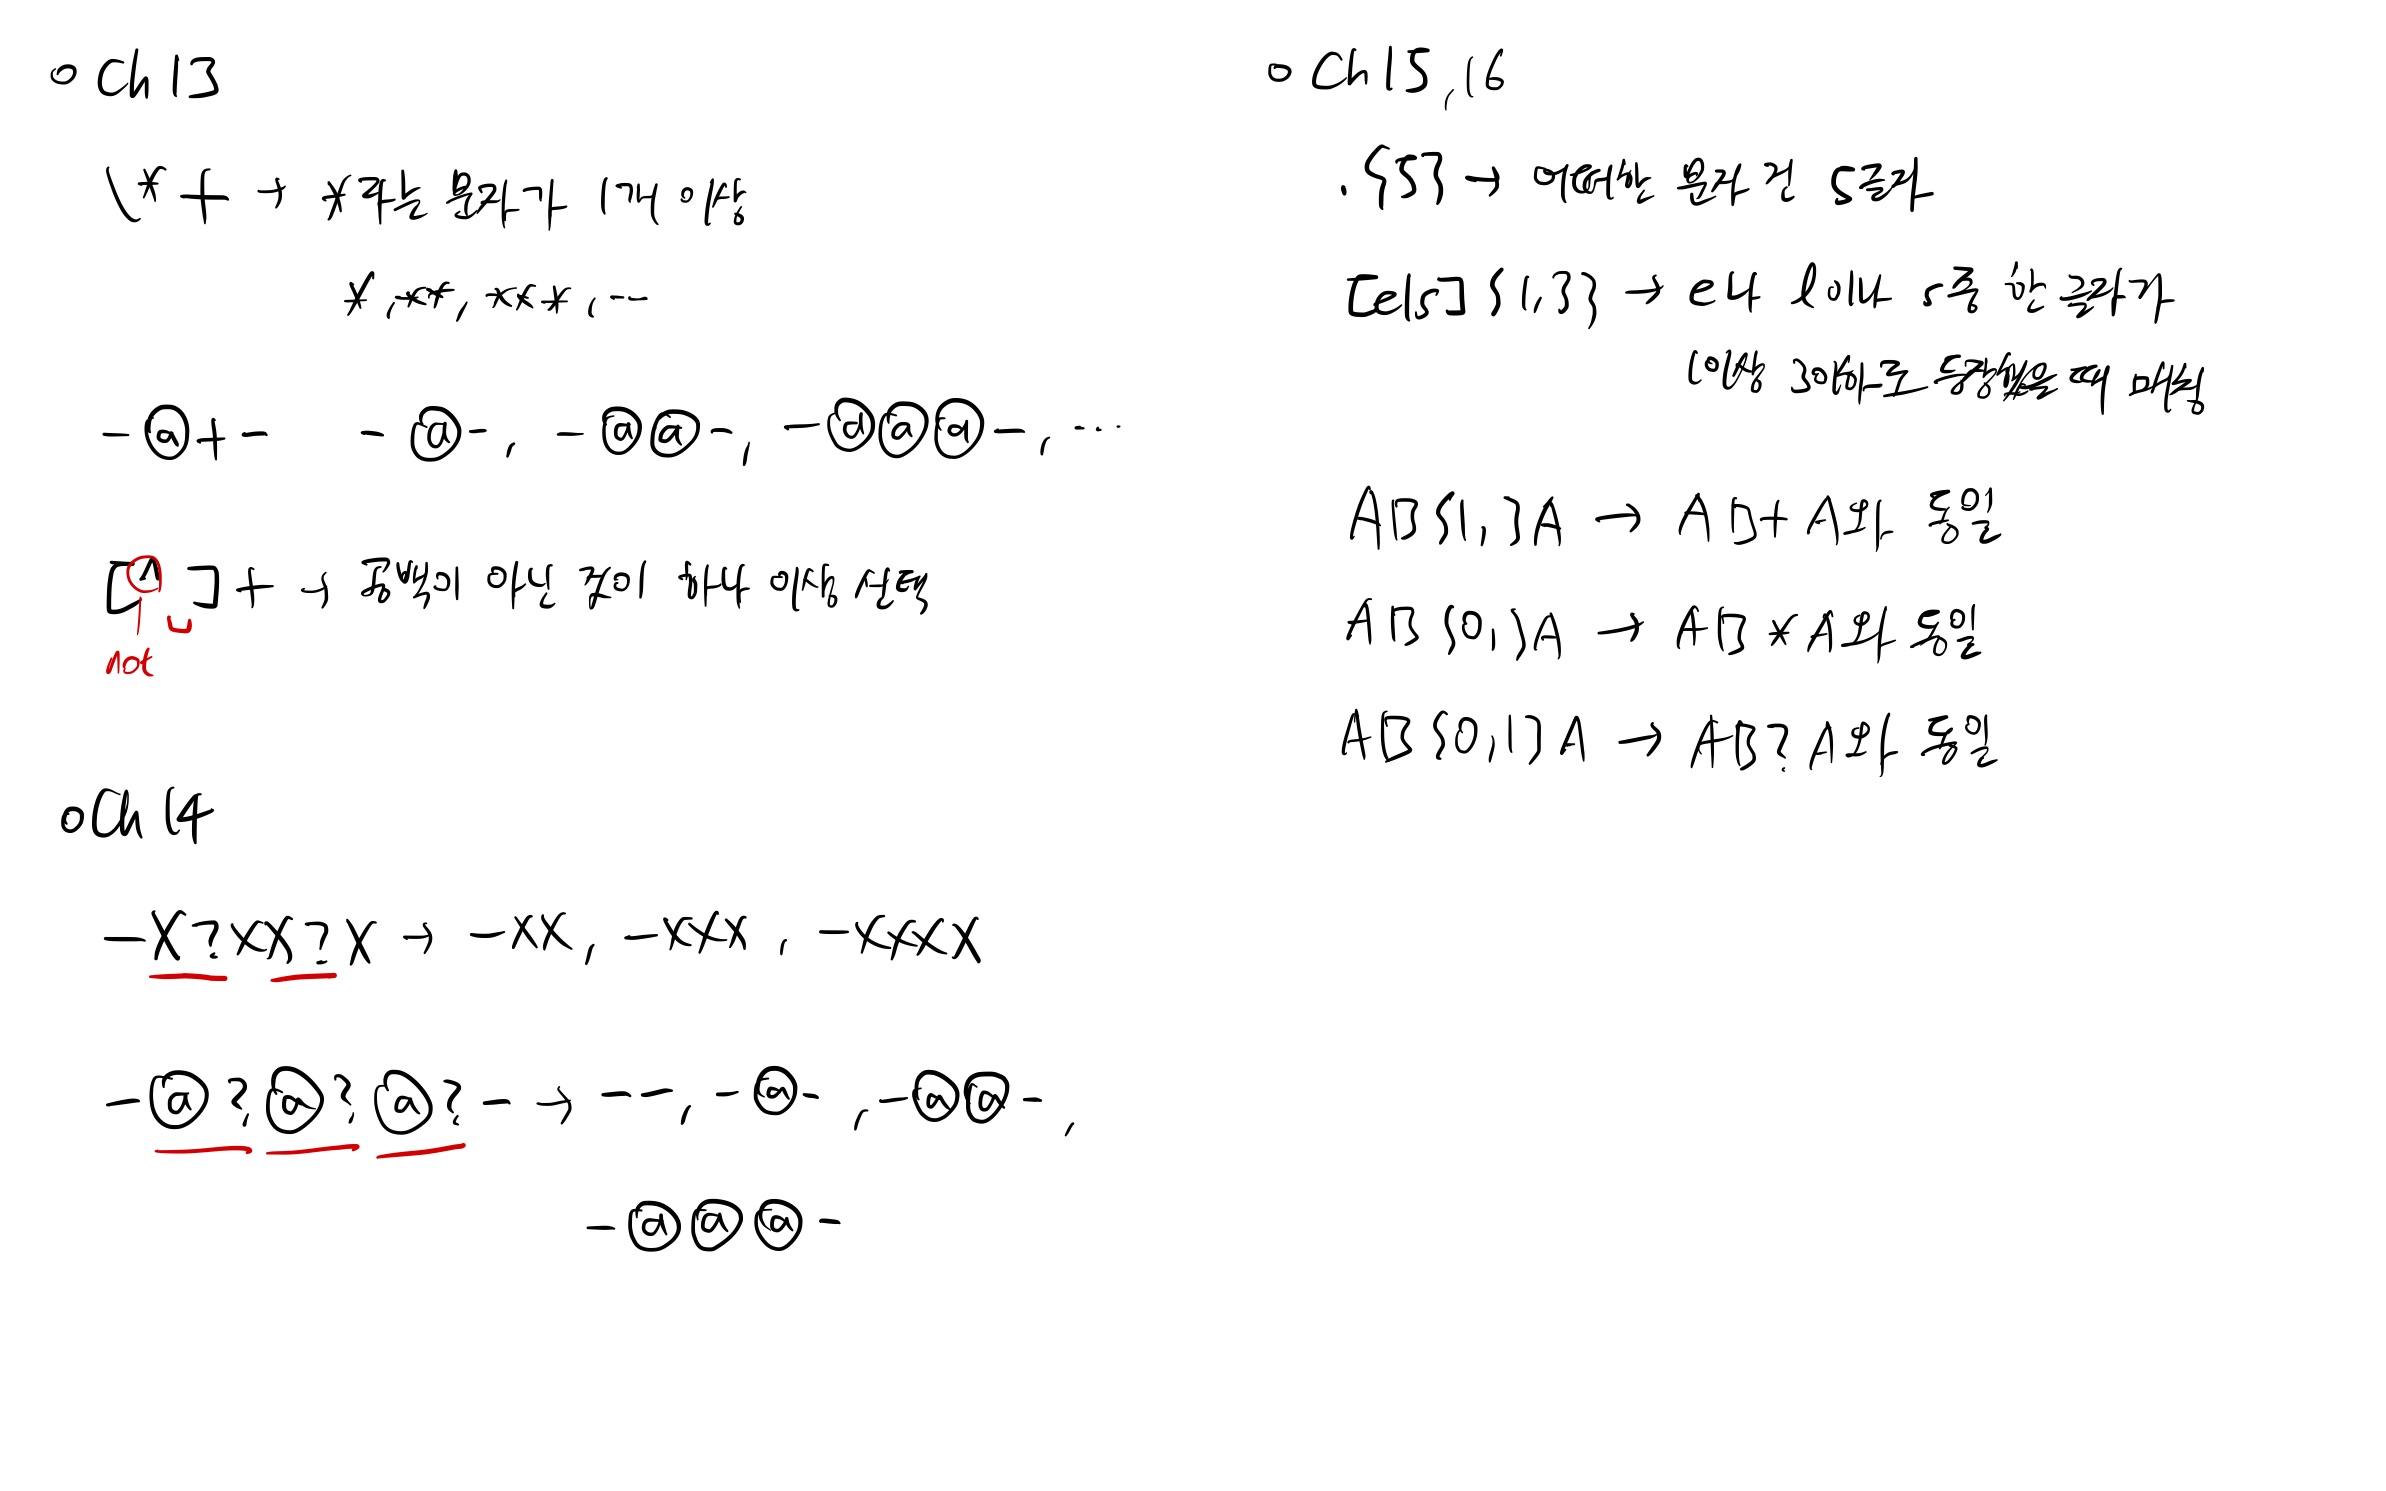 o Ch 13
\*+ → *라는 문자가 1개 이상
*, **, ***, …
-@+- -@-, -@@-, -@@@-, …
[^ ]+ → 공백이 아닌 것이 하나 이상 선택
not
o Ch 14
-X?XX?X → -XX, -XXX, -XXXX
-@?@?@?- → --, -@-, -@@-,
-@@@-
o Ch 15, 16
.{5} → 어떠한 문자 건 5글자
[els]{1,3} → e나 l이나 s중 한 글자가
1이상 3이하로 등장했을 때 매칭
AB{1,}A → AB+A와 동일
AB{0,}A → AB*A와 동일
AB{0,1}A → AB?A와 동일